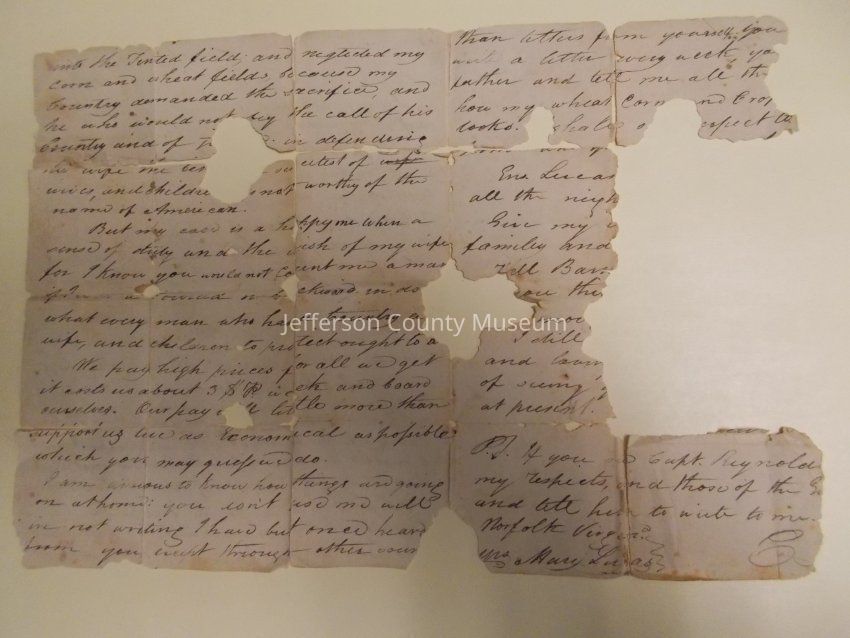 into the Tented field; and neglected my
corn and wheat fields because my
Country demanded the sacrifice, and
he who would not obey the call of his
Country and of in defending
the wife
wives, and children is not worthy of the
name of American.
But my case is a happy one when a
sense of duty and the wish of my wife
for I know you would not count me a man
if I was a coward or backward in do
what every man who has a country a
wife, and children to protect ought to a
We pay high prices for all we get
it costs us about 3 $ P week and board
ourselves. Our pay will little more than
support us live as Economical as possible
which you may guess we do.
I am anxious to know how things are going
on at home: you isn't use me well
in not writing I have but once heard
from you except through other
than letters from yourself, you
write a letter every week you
father and tell me all the
how my wheat Corn and Crop
looks. I shall expect
Ens. Lucas
all the neigh
Give my
families and
Tell Barn
you the
I still
and
of seeing
at present.
P.S. If you see Capt. Reynold
my respects, and those of the
and tell him to write to me.
Norfolk Virginia
Mrs. Mary Lucas
Jefferson County Museum